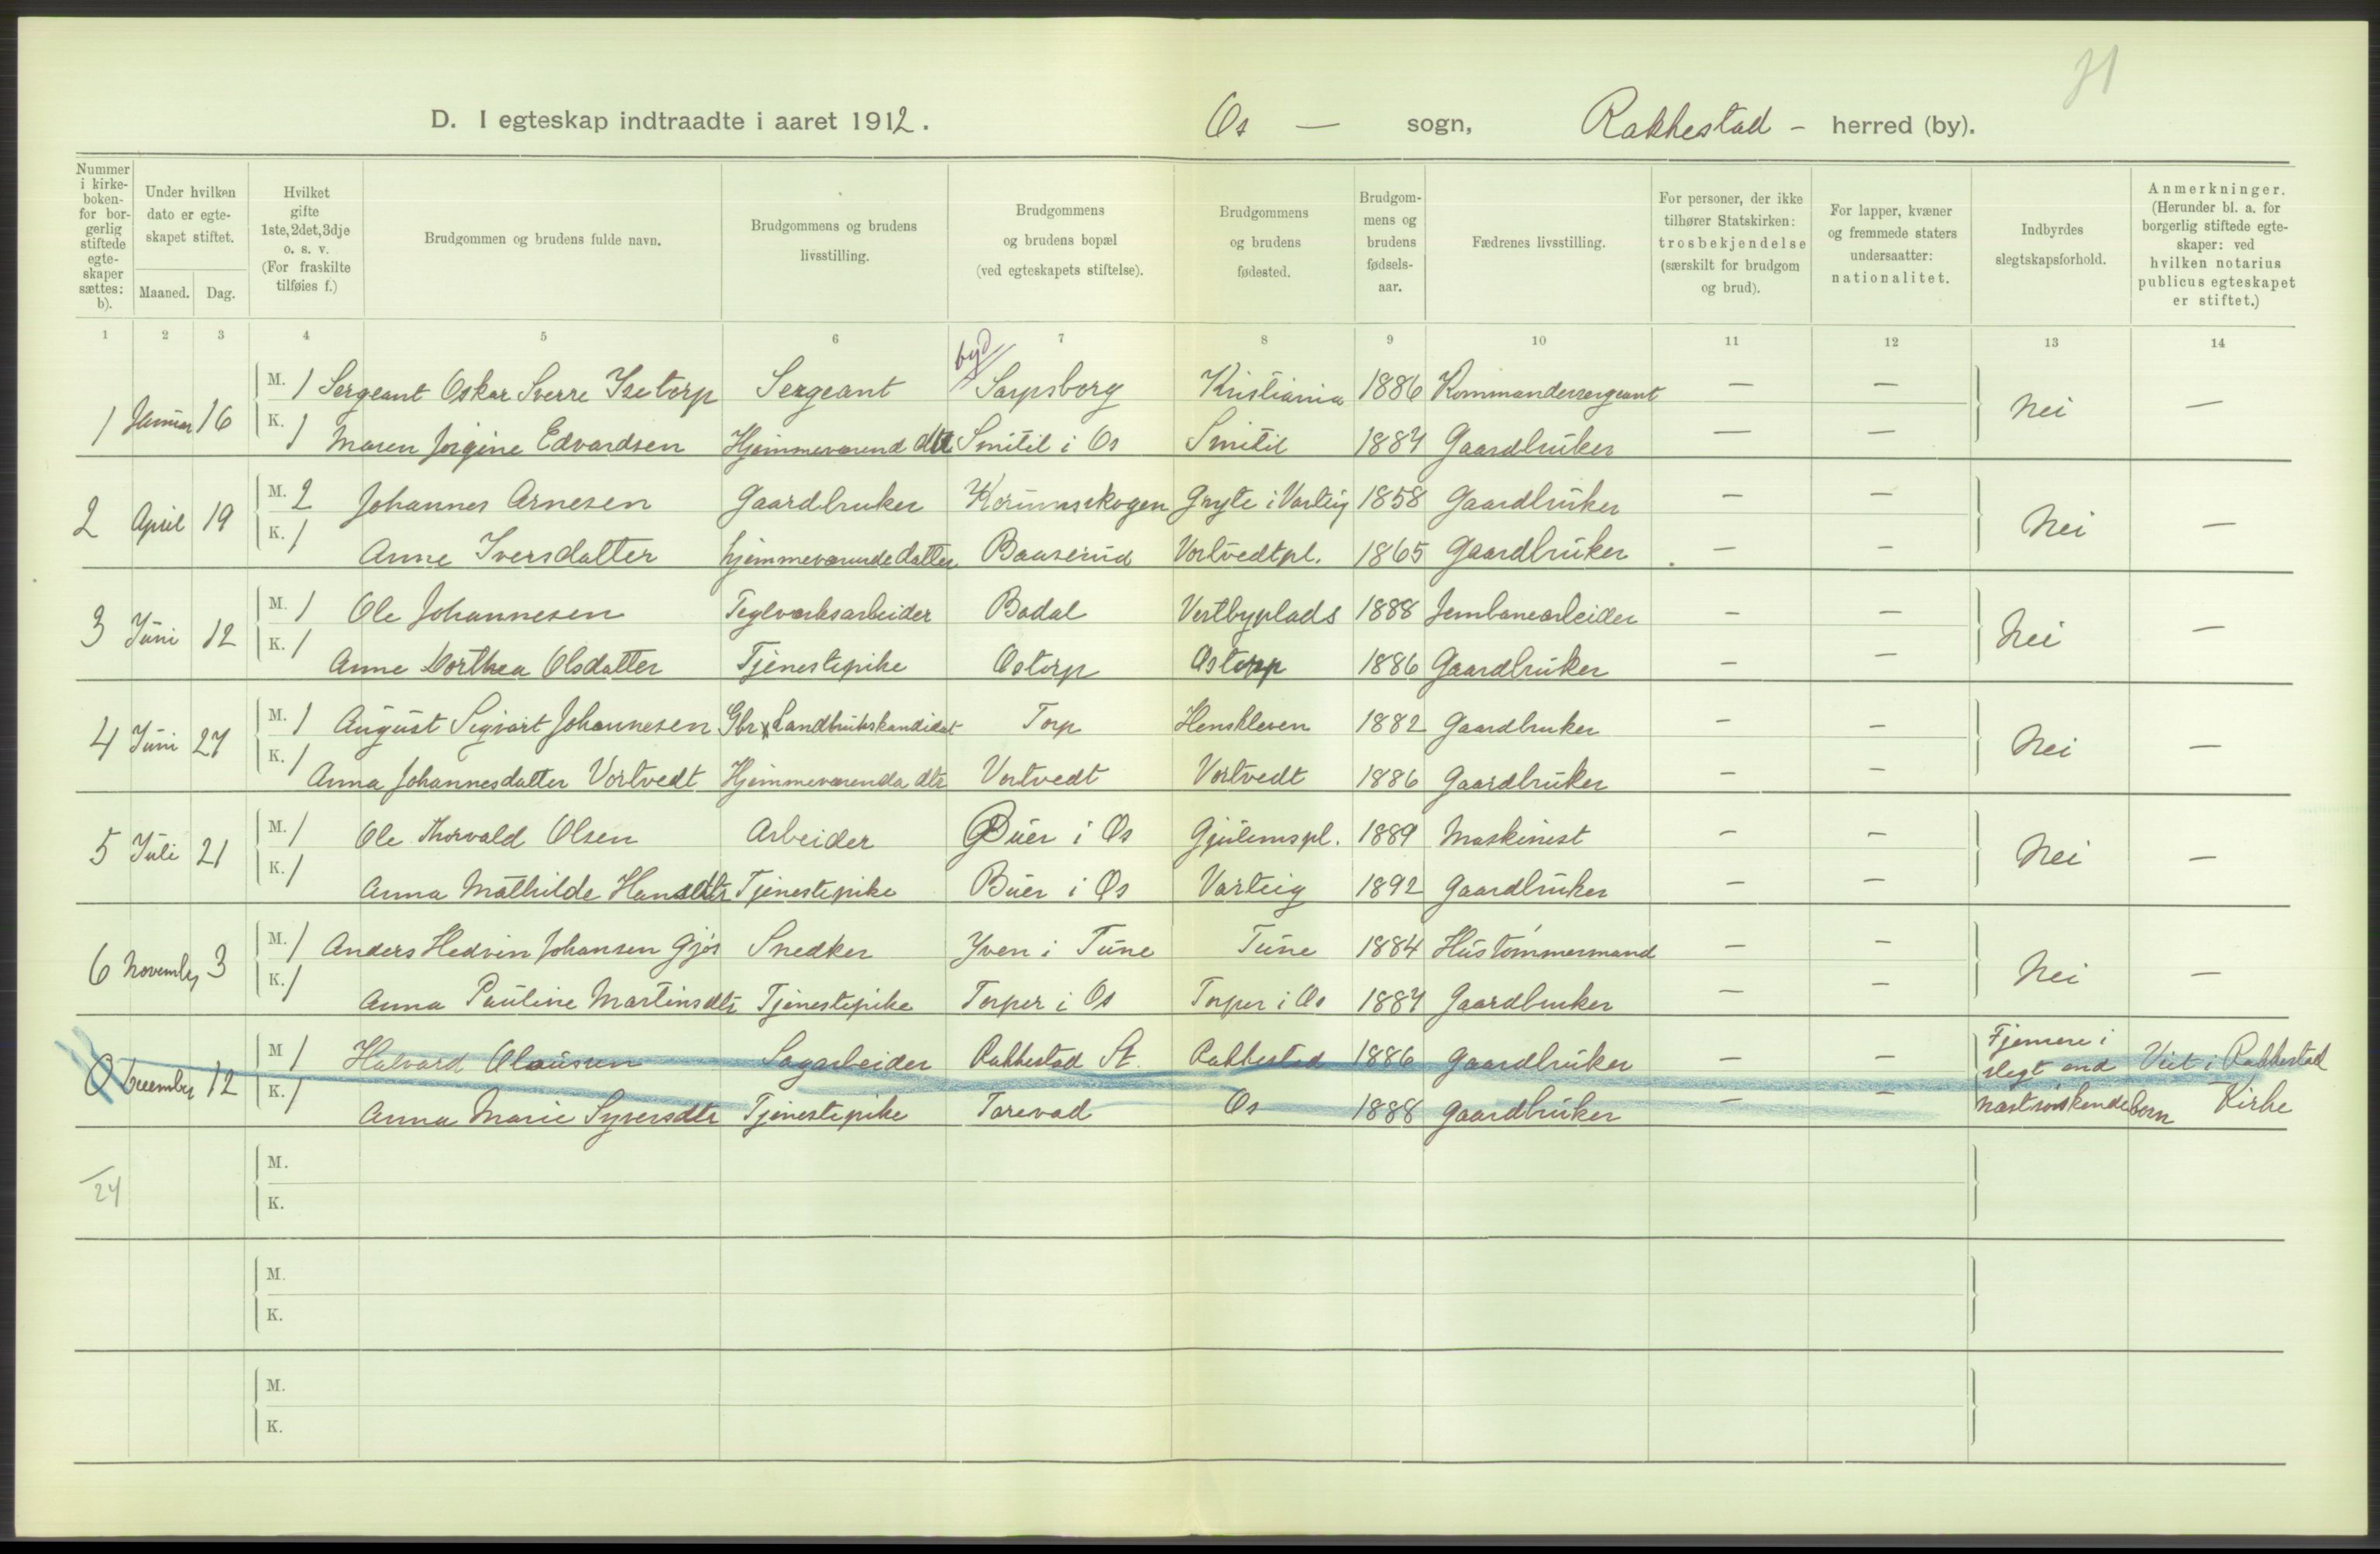 71
D. I egteskap indtraadte i aaret 1912. Os — sogn, Rakkestad – herred (by).
Nummer i kirkeboken- for borgerlig stiftede egteskaper sættes: b).
Under hvilken dato er egteskapet stiftet.
Maaned. Dag.
Hvilket gifte 1ste, 2det, 3dje o. s. v. (For fraskilte tilføies f.)
Brudgommen og brudens fulde navn.
Brudgommens og brudens livsstilling.
Brudgommens og brudens bopæl (ved egteskapets stiftelse).
Brudgommens og brudens fødested.
Brudgommens og brudens fødselsaar.
Fædrenes livsstilling.
For personer, der ikke tilhører Statskirken: trosbekjendelse (særskilt for brudgom og brud).
For lapper, kvæner og fremmede staters undersaatter: nationalitet.
Indbyrdes slegtskapsforhold.
Anmerkninger. (Herunder bl. a. for borgerlig stiftede egteskaper: ved hvilken notarius publicus egteskapet er stiftet.)
1 2 3 4 5 6 7 8 9 10 11 12 13 14
by
1 Januar 16 M. 1 Sergeant Oskar Sverre Isetorp Sergeant Sarpsborg Kristiania 1886 Kommandersergeant — — Nei —
K. 1 Maren Jørgine Edvardsen Hjemmeværend dtr Smitil i Os Smitil 1887 Gaardbruker — —
2 April 19 M. 2 Johannes Arnesen Gaardbruker Gryte i Varteig 1858 Gaardbruker — — Nei —
K. 1 Anne Iversdatter hjemmeværende datter Baaserud Vortvedtpl. 1865 Gaardbruker — —
3 Juni 12 M. 1 Ole Johannesen Teglverksarbeider Bodal Vestbyplads 1888 Jernbanearbeider — — Nei —
K. 1 Anne Dorthea Olsdatter Tjenestepike Ostorp Ostorp 1886 Gaardbruker — —
4 Juni 27 M. 1 August Sigvart Johannesen Gbr x Landbrukskandidat Torp Henskleven 1882 Gaardbruker — — Nei —
K. 1 Anna Johannesdatter Vortvedt Hjemmeværenda dtr Vortvedt Vortvedt 1886 Gaardbruker — —
5 Juli 21 M. 1 Ole Thorvald Olsen Arbeider Buer i Os Gjulemspl. 1889 Maskinist — — Nei —
K. 1 Anna Mathilde Hansdtr Tjenestepike Buer i Os Varteig 1892 Gaardbruker — —
6 November 3 M. 1 Anders Hedvin Johansen Gjøs Snedker Yven i Tune Tune 1884 Hustømmermand — — Nei —
K. 1 Anna Pauline Martinsdtr Tjenestepike Torper i Os Torper i Os 1887 Gaardbruker — —
0 December 12 M 1 Halvard Olausen Sagarbeider Rakkestad St. Rakkestad 1886 Gaardbruker — — Fjernere i slegt end næstsøskendebørn Viet i Rakkestad Kirke
K. 1 Anna Marie Syversdtr Tjenestepike Torevad Os 1888 Gaardbruker — —
M.
24
K.
M.
K.
M.
K.